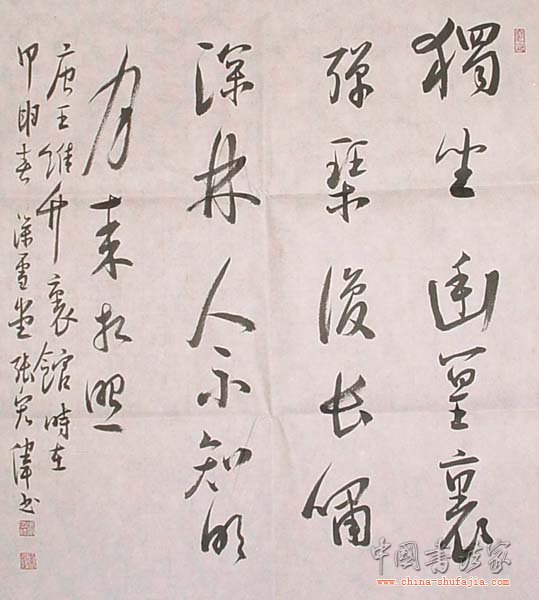 獨坐幽篁裏
彈琴復长嘯
深林人不知明
月来相照
唐王維竹裏館時在
甲申春深雪堂張宏偉书
中国书法家
www.china-shufajia.com